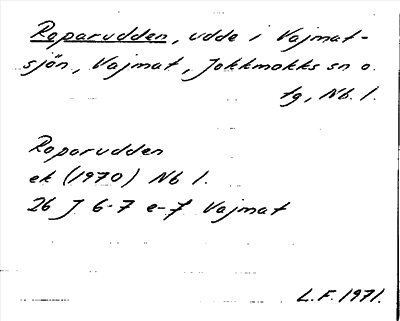 Roparudden, udde i Vajmat-
sjön, Vajmat, Jokkmokks sn o.
tg, Nb. l.
Roparudden
ek (1970) Nb l.
26 J 6-7 e-f Vajmat
L.F. 1971.